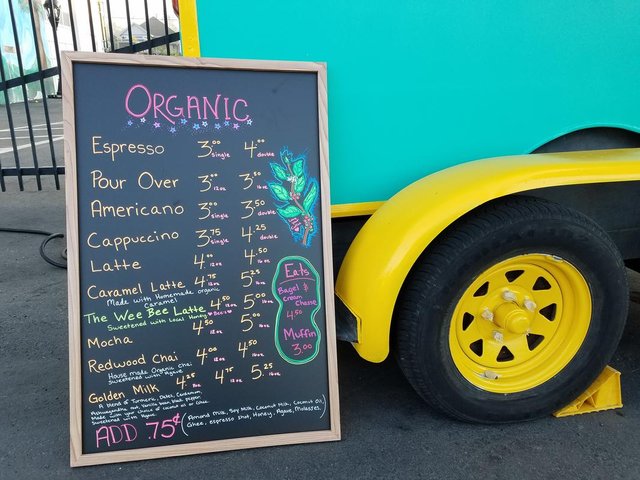 ORGANIC
Espresso 3.00 single 4.00 double
Pour Over 3.00 12oz 3.50 16oz
Americano 3.00 single 3.50 double
Cappuccino 3.75 single 4.25 double
Latte 4.00 12oz 4.50 16oz
Caramel Latte 4.75 12oz 5.25 16oz
Made with Homemade organic
Caramel
The Wee Bee Latte 4.50 12oz 5.00 16oz
Sweetened with Local Honey ♥Bees♥
Mocha 4.50 12oz 5.00 16oz
Redwood Chai 4.00 12oz 4.50 16oz
House made Organic Chai
Sweetened with Agave
Golden Milk 4.25 4.75 12oz 5.25 16oz
A blend of Turmeric, Dates, Cardamom,
Ashwagandha root, Vanilla bean, black pepper
Made with your choice of coconut oil or Ghee.
Sweetened with Agave
ADD .75¢ (Almond milk, Soy Milk, Coconut Milk, Coconut Oil,
Ghee, espresso shot, Honey, Agave,
Eats
Bagel &
cream
Cheese
4.50
Muffin
3.00